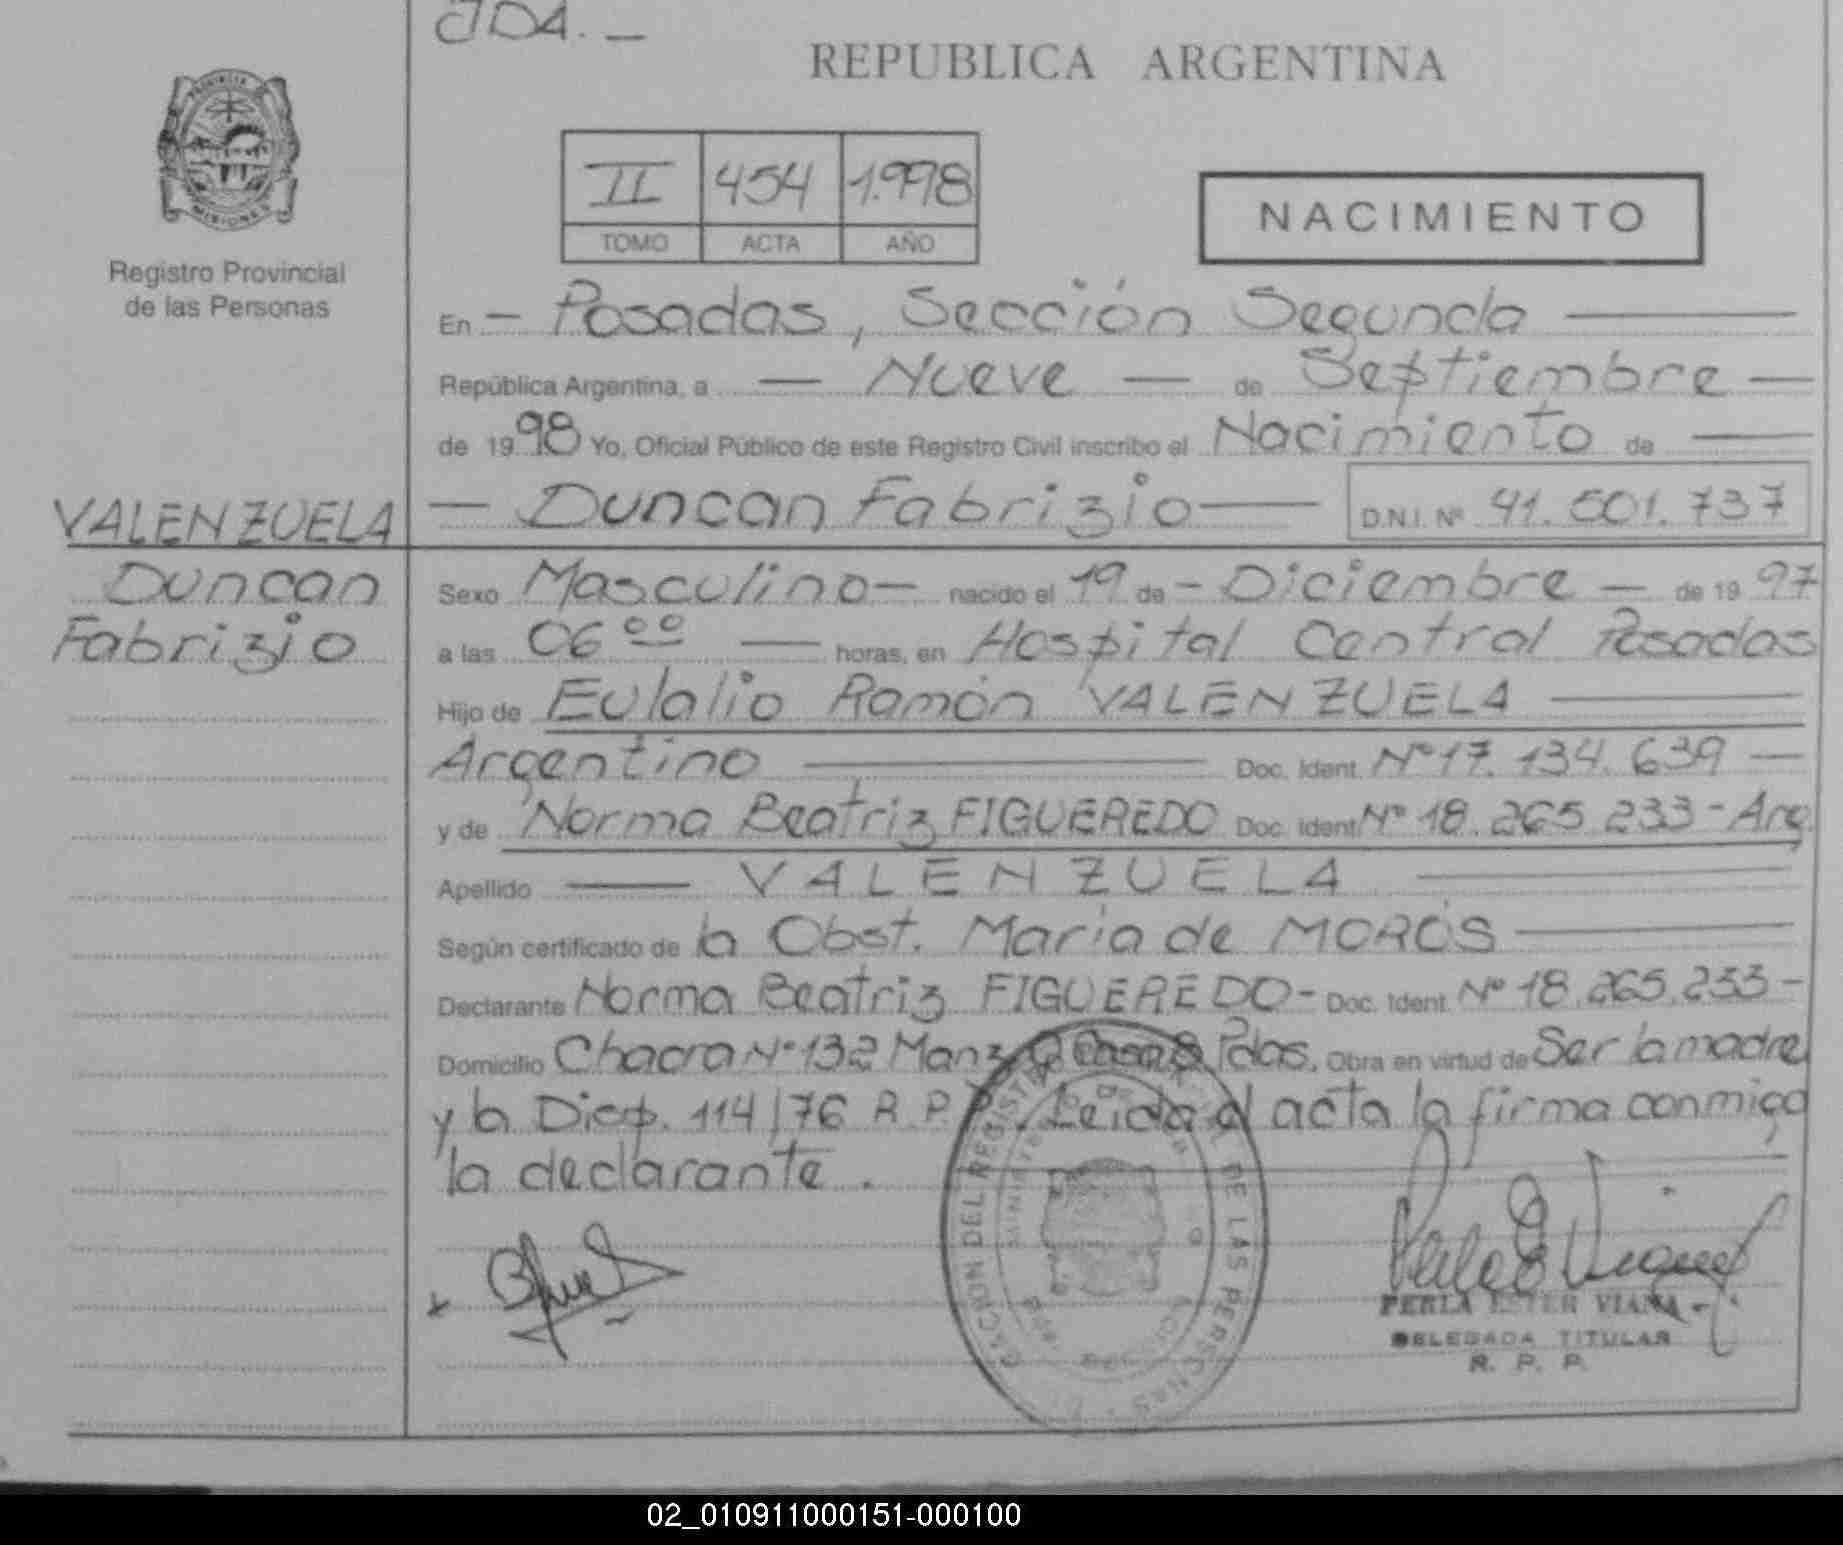 JDA. –
REPUBLICA ARGENTINA
PROVINCIA DE
MISIONES
Registro Provincial
de las Personas
II 454 1.998
TOMO ACTA AÑO
NACIMIENTO
En – Posadas, Sección Segunda
República Argentina, a — Nueve — de Septiembre —
de 1998 Yo, Oficial Público de este Registro Civil inscribo el Nacimiento de —
VALENZUELA — Duncan Fabrizio — D.N.I. Nº 41.501.737
Duncan
Fabrizio
Sexo Masculino – nacido el 19 de – Diciembre – de 1997
a las 06 00 — horas, en Hospital Central Posadas
Hijo de Eulalio Ramón VALENZUELA
Argentino — Doc. Ident. Nº 17.134.639 —
y de Norma Beatriz FIGUEREDO Doc. Ident. Nº 18.265.233 - Arg.
Apellido — VALENZUELA —
Según certificado de la Obst. Maria de MOROS —
Declarante Norma Beatriz FIGUEREDO - Doc. Ident. Nº 18.265.233 -
Domicilio Chacra Nº 132 Manz Casa 8 Pdas. Obra en virtud de Ser la madre
y la Disp. 114/76 R.P.P. Leida el acta la firma conmigo
la declarante.
DEL REGISTRO DE LAS PERSONAS
PERLA ESTER VIANA
DELEGADA TITULAR
R. P. P.
02_010911000151-000100